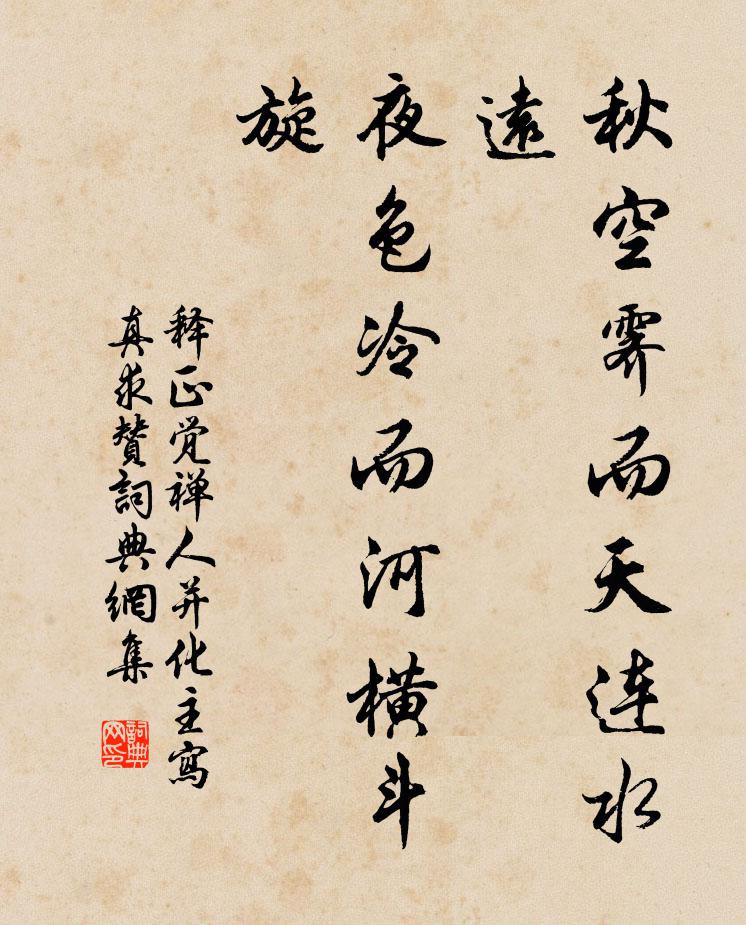 秋空霁而天连水
遠
夜色冷而河横斗
旋
释正觉禅人并化主寫
真求赞詞典網集
詞典
网印